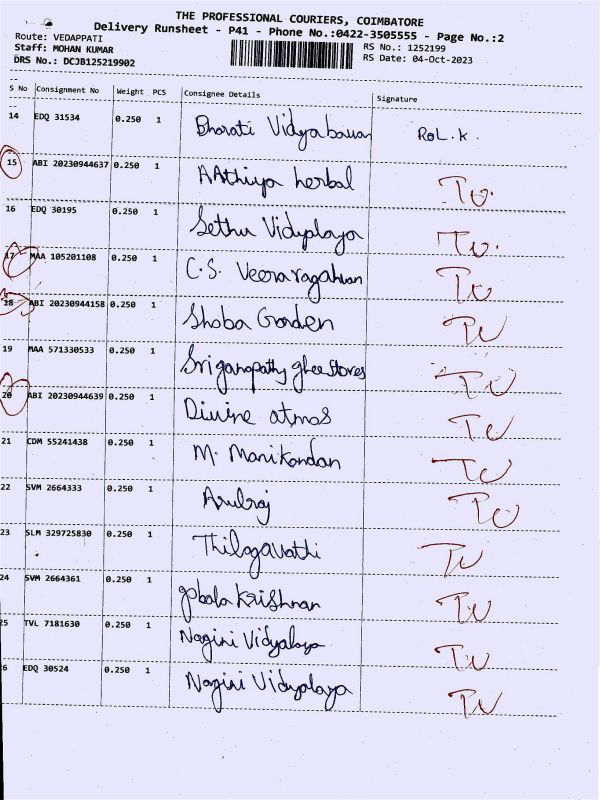 THE PROFESSIONAL COURIERS, COIMBATORE
Delivery Runsheet - P41 - Phone No.:0422-3505555 - Page No.:2
Route: VEDAPPATI
Staff: MOHAN KUMAR RS No.: 1252199
DRS No.: DCJB125219902 RS Date: 04-Oct-2023
S No Consignment No Weight PCS Consignee Details Signature
14 EDQ 31534 0.250 1 Bharati Vidyabavan RoL.K.
15 ABI 20230944637 0.250 1 AAthiya herbal
16 EDQ 30195 0.250 1 Sethu Vidyalaya
17 MAA 105201108 0.250 1 C.S. Veeraragahvan
18 ABI 20230944158 0.250 1 Shoba Garden
19 MAA 571330533 0.250 1 Sriganapathy ghee stores
20 ABI 20230944639 0.250 1 Divine atmos
21 CDM 55241438 0.250 1 M. Manikandan
22 SVM 2664333 0.250 1 Arulraj
23 SLM 329725830 0.250 1 Thilagavathi
24 SVM 2664361 0.250 1 gobala Krishnan
25 TVL 7181630 0.250 1 Nagini Vidyalaya
6 EDQ 30524 0.250 1 Nagini Vidyalaya